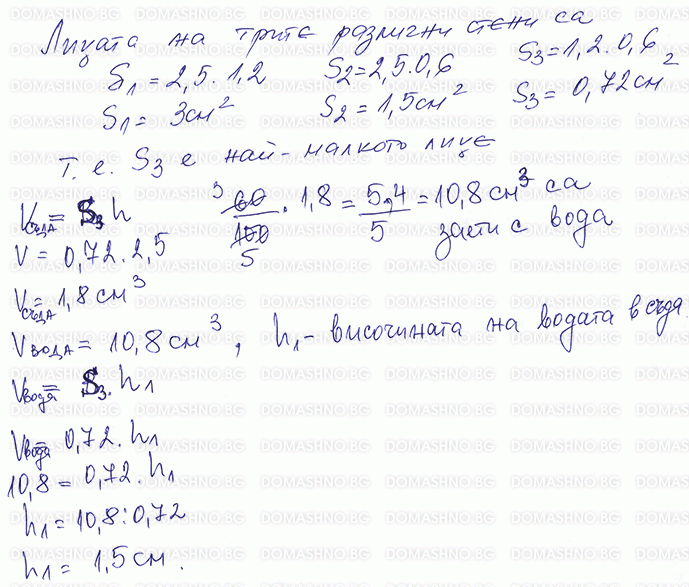 Лицата на трите различни стени са
S₁ = 2,5 . 1,2 S₂ = 2,5 . 0,6 S₃ = 1,2 . 0,6
S₁ = 3см² S₂ = 1,5см² S₃ = 0,72см²
т. е. S₃ е най-малкото лице
Vсъда = S₃ h
V = 0,72 . 2,5
Vсъда = 1,8 см³
³60/150 5 . 1,8 = 5,4/5 = 10,8 см³ са
заети с вода
Vвода = 10,8 см³, h₁ - височината на водата в съда.
Vвода = S₃ . h₁
Vвода = 0,72 . h₁
10,8 = 0,72 . h₁
h₁ = 10,8 : 0,72
h₁ = 1,5 см .
DOMASHNO.BG